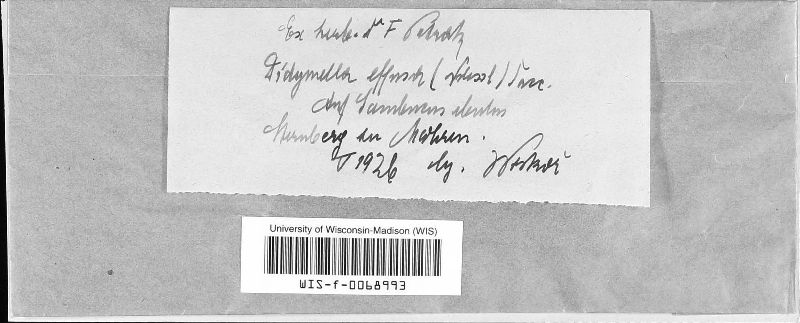 Ex herb. Dr F Petrak
Didymella effusa (Niessl) Sacc.
Auf Sambucus ebulus
Sternberg in Mähren.
V 1926 lg.
University of Wisconsin-Madison (WIS)
WIS-f-0068993